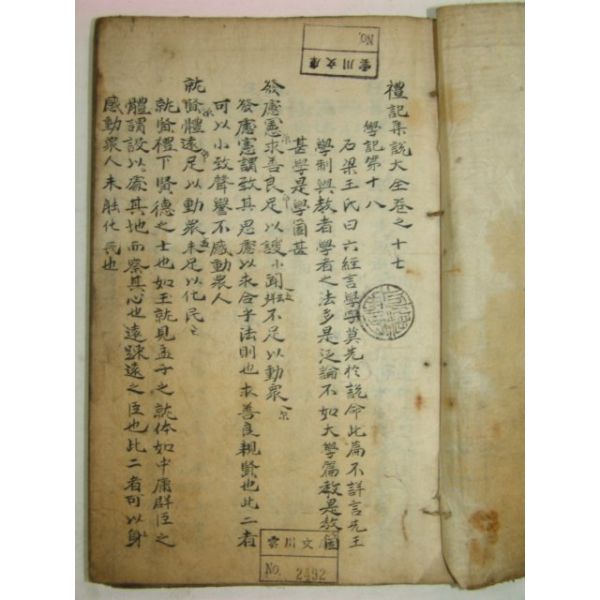 禮記集說大全卷之十七
學記第十八
石梁王氏曰六經言學字莫先於說命此篇不詳言先王
學制與教者學者之法多是泛論不如大學篇教是教箇
甚學是學箇甚
發慮憲求善良足以謏聞不足以動衆
發慮憲謂致其思慮以求合乎法則也求善良親賢也此二者
可以小致聲譽不感動衆人
就賢體遠足以動衆未足以化民
就賢禮下賢德之士也如王就見孟子之就体如中庸群臣之
體謂設以處其地而察其心也遠踈遠之臣也此二者可以身
感動衆人未能化民也
雲川文庫
No.
雲川文
No. 2492